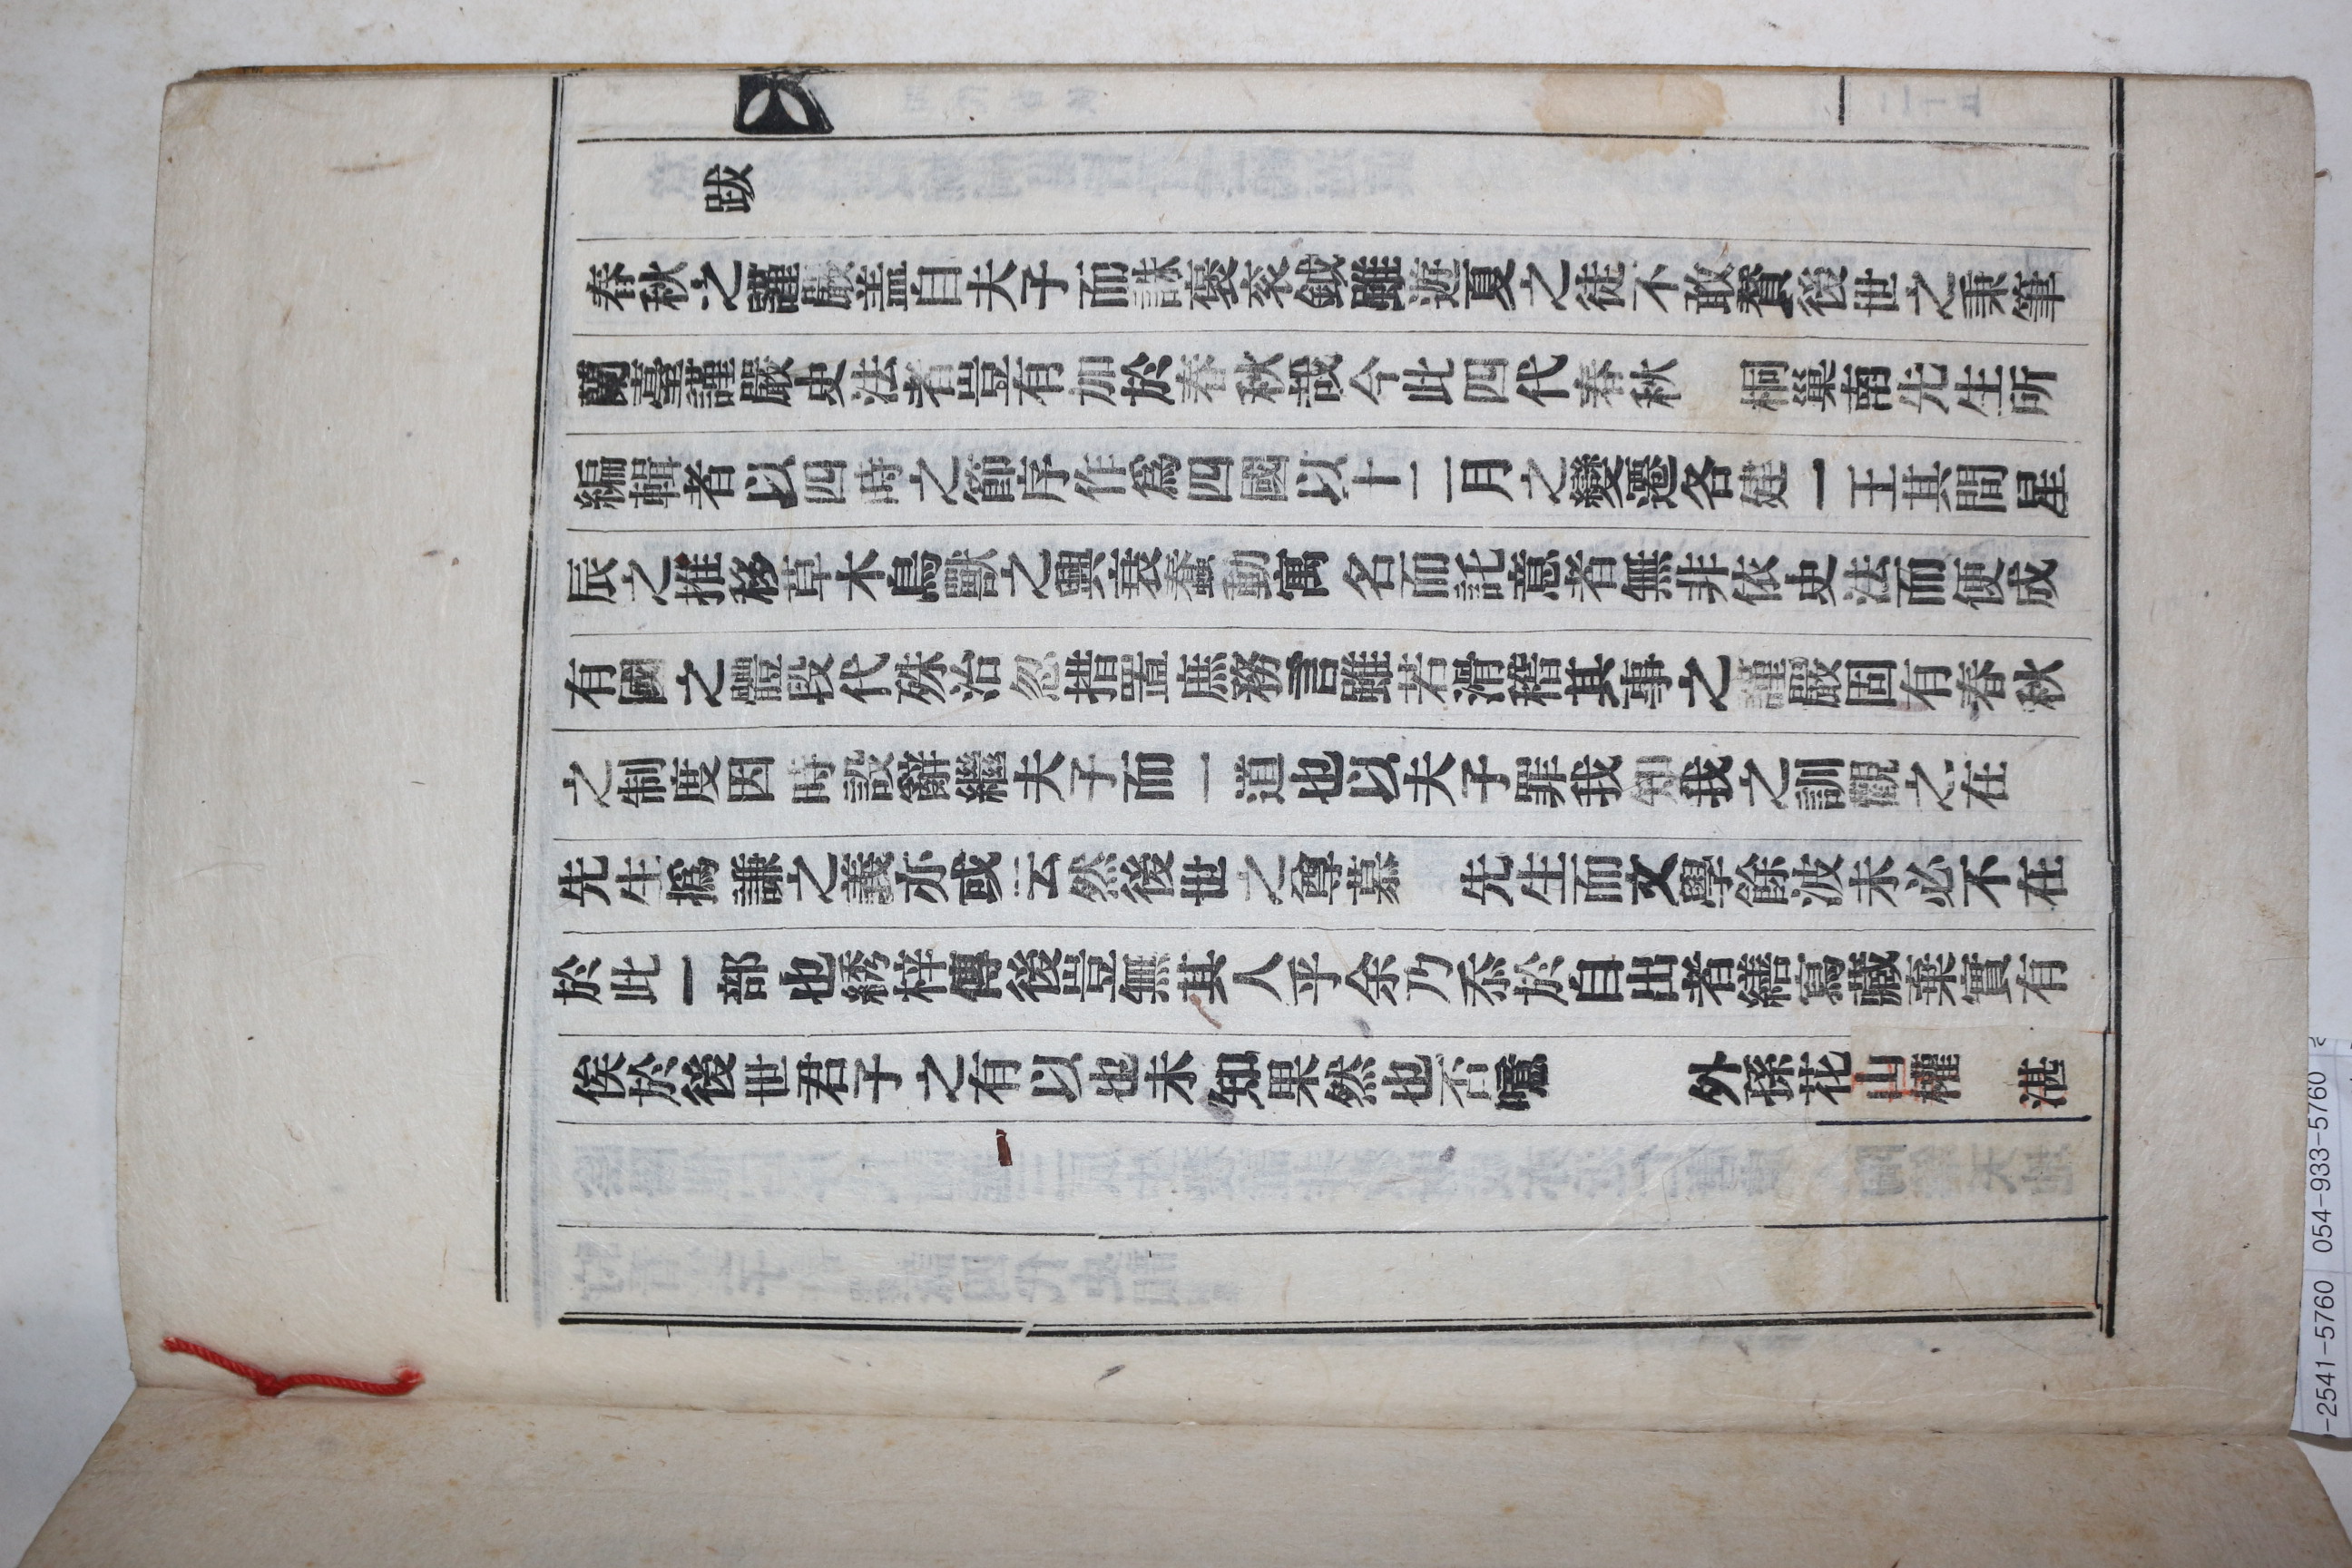 跋
春秋之謹嚴盖自夫子而誅褒衮鉞雖遊夏之徒不敢賛後世之秉筆
蘭臺謹嚴史法者豈有加於春秋哉今此四代春秋 桐巢南先生所
編輯者以四時之節序作爲四國以十二月之變遷各建一王其間星
辰之推移草木鳥獸之興衰蠢動寓名而託意者無非依史法而便成
有國之體段代殊治忽措置庶務言雖若滑稽其事之謹嚴固有春秋
之制度因時設辭繼夫子而一道也以夫子罪我知我之訓觀之在
先生撝謙之義亦或云然後世之尊慕 先生而文學餘波未必不在
於此一部也綉梓傳後豈無其人乎余乃忝於自出者繕寫藏棄實有
俟於後世君子之有以也未知果然也否噫 外孫花山權 湛
-2541-5760 054-933-5760